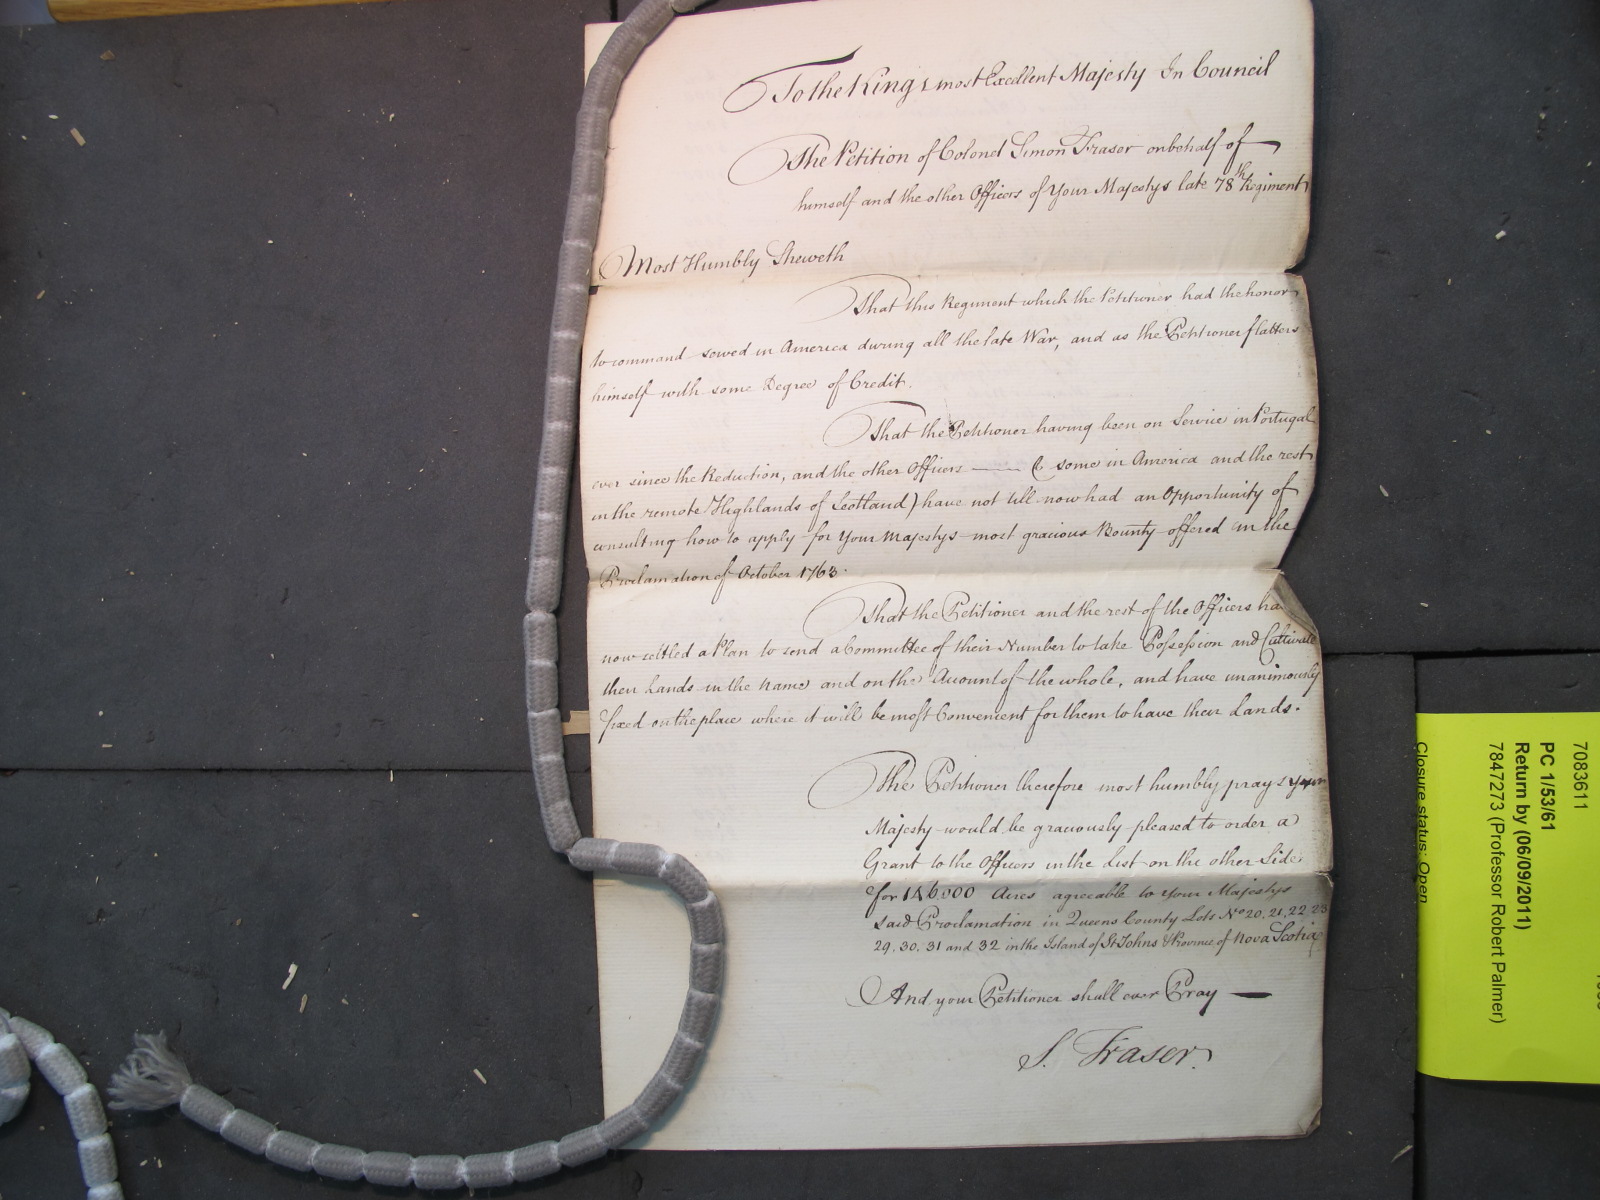 To the Kings most Excellent Majesty In Council
The Petition of Colonel Simon Fraser on behalf of
himself and the other Officers of Your Majestys late 78th Regiment
Most Humbly Sheweth
That this Regiment which the Petitioner had the honor
to command served in America during all the late War, and as the Petitioner flatters
himself with some Degree of Credit.
That the Petitioner having been on Service in Portugal
ever since the Reduction, and the other Officers —— ( some in America and the rest
in the remote Highlands of Scotland) have not till now had an Opportunity of
consulting how to apply for Your Majestys most gracious Bounty offered in the
Proclamation of October 1763.
That the Petitioner and the rest of the Officers ha
now settled a Plan to send a Committee of their Number to take Possession and Cultivate
their Lands in the name and on the Account of the whole, and have unanimously
fixed on the place where it will be most Convenient for them to have their Lands.
The Petitioner therefore most humbly prays your
Majesty would be graciously pleased to order a
Grant to the Officers in the List on the other Side
for Acres agreeable to Your Majestys
said Proclamation in Queens County Lots No 20, 21, 22, 23
29, 30, 31 and 32 in the Island of St Johns & Province of Nova Scotia
And your Petitioner shall ever Pray —
S. Fraser.
7083611
PC 1/53/61
Return by (06/09/2011)
7847273 (Professor Robert Palmer)
Closure status: Open